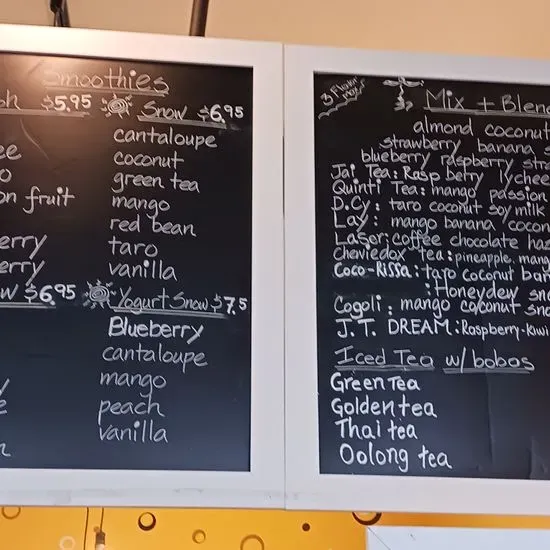 Smoothies
$5.95
Snow $6.95
cantaloupe
coconut
green tea
mango
on fruit
red bean
taro
erry
vanilla
erry
$6.95
Yogurt Snow $7.5
Blueberry
cantaloupe
mango
peach
vanilla
3 Flavor
mix
Mix + Blen
almond coconut
strawberry banana s
blueberry raspberry str
Jai Tea: Raspberry lychee
Quinti Tea: mango passion
D.Cy: taro coconut soy milk
Lay: mango banana cocon
Laser: coffee chocolate haz
Chaviedox tea: pineapple, mang
Coco-Rissa: taro coconut ban
: Honeydew sno
Cogoli: mango coconut sno
J.T. DREAM: Raspberry-Kiwi
Iced Tea w/bobas
Green Tea
Golden tea
Thai tea
Oolong tea